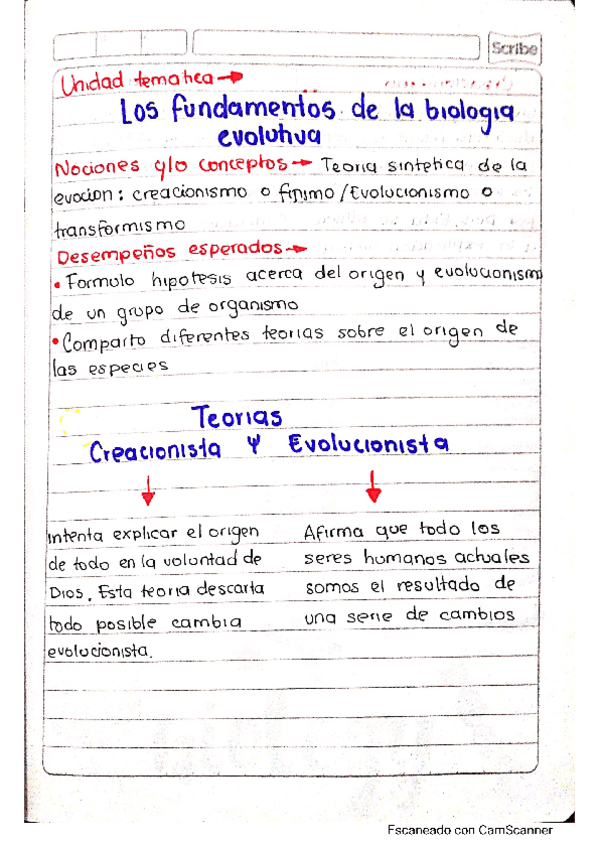 Scribe
Unidad tematica →
Los fundamentos de la biologia
evolutiva
Nociones y/o conceptos → Teoria sintetica de la
evocion: creacionismo o finimo / Evolucionismo o
transformismo
Desempeños esperados →
• Formulo hipotesis acerca del origen y evolucionismo
de un grupo de organismo
• Comparto diferentes teorias sobre el origen de
las especies
Teorias
Creacionista y Evolucionista
Intenta explicar el origen
de todo en la voluntad de
Dios. Esta teoria descarta
todo posible cambia
evolucionista.
Afirma que todo los
seres humanos actuales
somos el resultado de
una serie de cambios
Escaneado con CamScanner